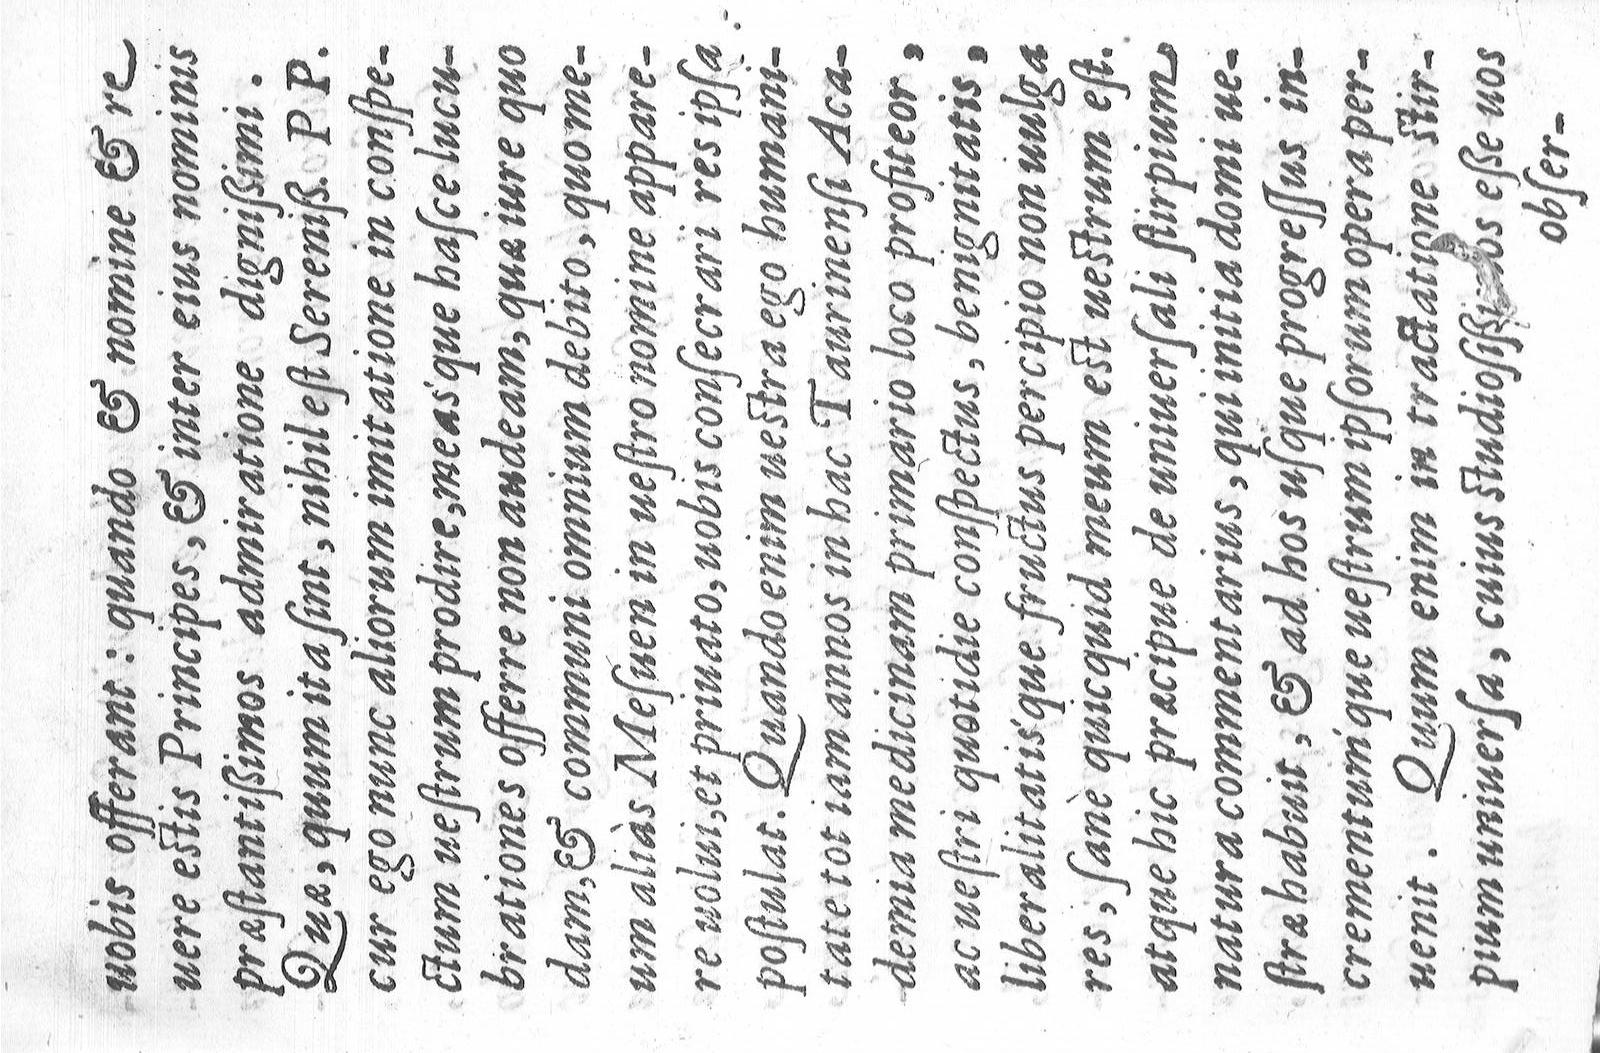 uobis offerant: quando & nomine & re
uere estis Principes, & inter eius nominis
præstantißimos admiratione dignißimi.
Quæ, quum ita sint, nihil est Sereniß. P P.
cur ego nunc aliorum imitatione in conspe-
ctum uestrum prodire, measq́ue hasce lucu-
brationes offerre non audeam, quæ iure quo
dam, & communi omnium debito, quo me-
um aliàs Mesuen in uestro nomine appare-
re uolui, et priuato, uobis consecrari res ipsa
postulat. Quando enim uestra ego humani-
tate tot iam annos in hac Taurinensi Aca-
demia medicinam primario loco profiteor,
ac uestri quotidie conspectus, benignitatis,
liberalitatisq́ue fructus percipio non uulga
res, sanè quicquid meum est uestrum est.
atque hic præcipue de uniuersali stirpium
natura commentarius, qui initia domi ue-
stræ habuit, & ad hos usque progressus in-
crementumq́ue uestrum ipsorum opera per-
uenit. Quum enim in tractatione stir-
pium uniuersa, cuius studiosissimos esse uos
obser-